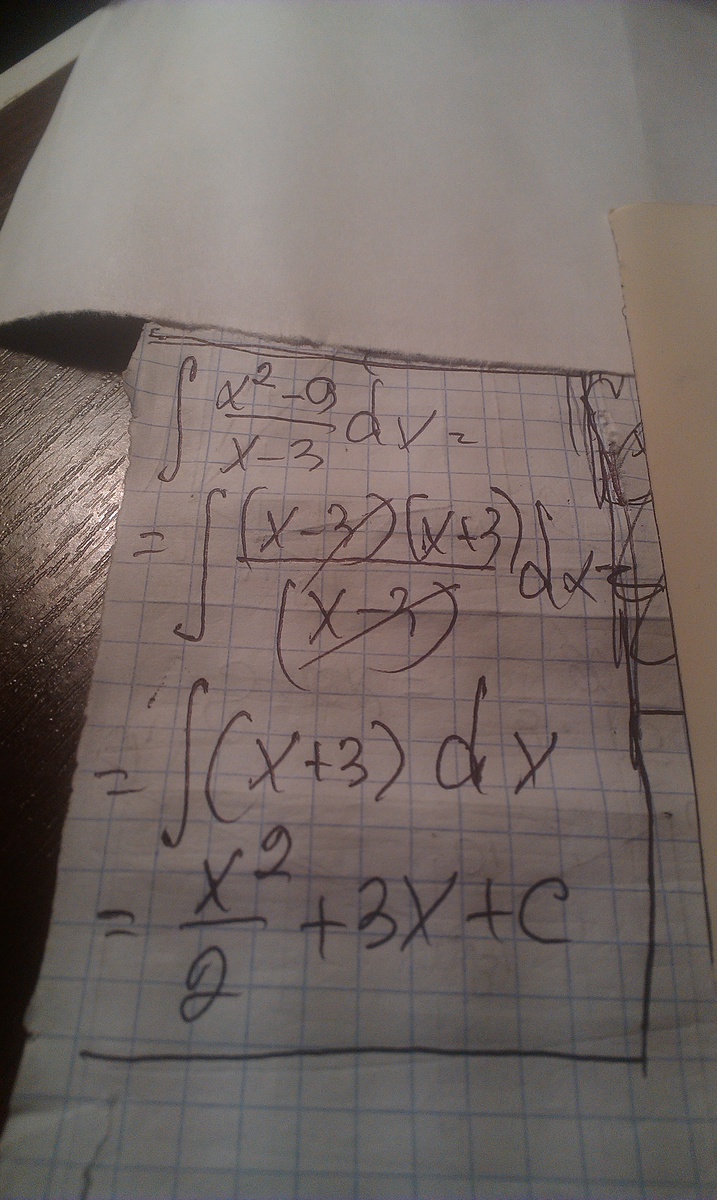 ∫ (x² - 9)/(x - 3) dx =
= ∫ (x - 3)(x + 3)/(x - 3) dx =
= ∫ (x + 3) dx
= x²/2 + 3x + C